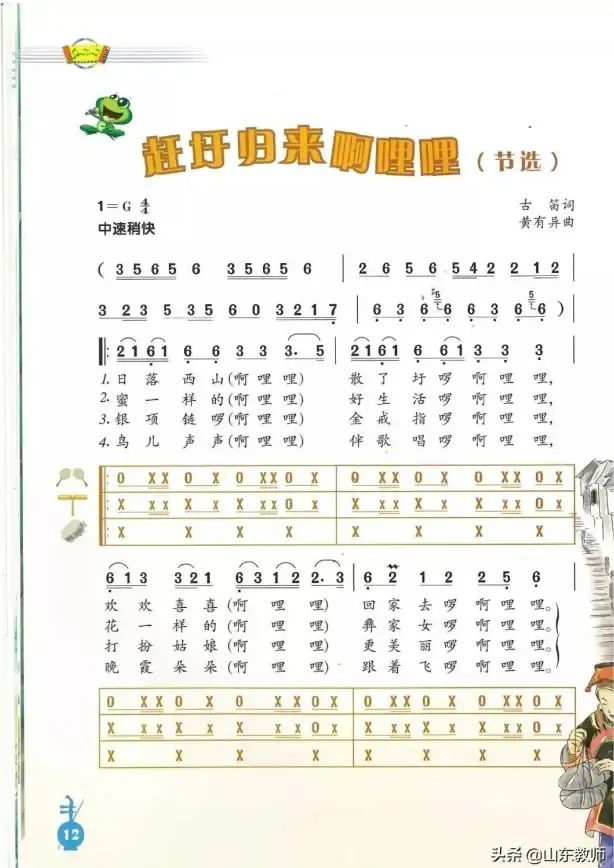 赶圩归来啊哩哩（节选）
1=G 4/4
古 笛词
中速稍快
黄有异曲
( 3 5 6 5 6 3 5 6 5 6 | 2 6 5 6 5 4 2 2 1 2 |
3 2 3 5 3 5 6 0 3 2 1 7 | 6 3 6 #5 6 6 3 6 5 6 )
‖: 2 1 6 1 6 6 3 3 3. 5 | 2 1 6 1 6 6 1 3 3 3 |
1. 日 落 西 山(啊 哩 哩) 散 了 圩 啰 啊 哩 哩,
2. 蜜 一 样 的(啊 哩 哩) 好 生 活 啰 啊 哩 哩,
3. 银 项 链 啰(啊 哩 哩) 金 戒 指 啰 啊 哩 哩,
4. 鸟 儿 声 声(啊 哩 哩) 伴 歌 唱 啰 啊 哩 哩,
0 X X X 0 X 0 X X 0 X | 0 X X X 0 X 0 X X 0 X
X X X X X X X X 0 X | X X X X X X X X 0 X
X X X X | X X X X
6 1 3 3 2 1 6 3 1 2 2. 3 | 6 2 1 2 2 5 6
欢 欢 喜 喜(啊 哩 哩) 回 家 去 啰 啊 哩 哩。
花 一 样 的(啊 哩 哩) 彝 家 女 啰 啊 哩 哩。
打 扮 姑 娘(啊 哩 哩) 更 美 丽 啰 啊 哩 哩。
晚 霞 朵 朵(啊 哩 哩) 跟 着 飞 啰 啊 哩 哩。
0 X X X 0 X 0 X X 0 X | 0 X X X 0 X 0 X X 0 X
X X X X X X X X 0 X | X X X X X X X X 0 X
X X X X | X X X X
12
头条 @山东教师